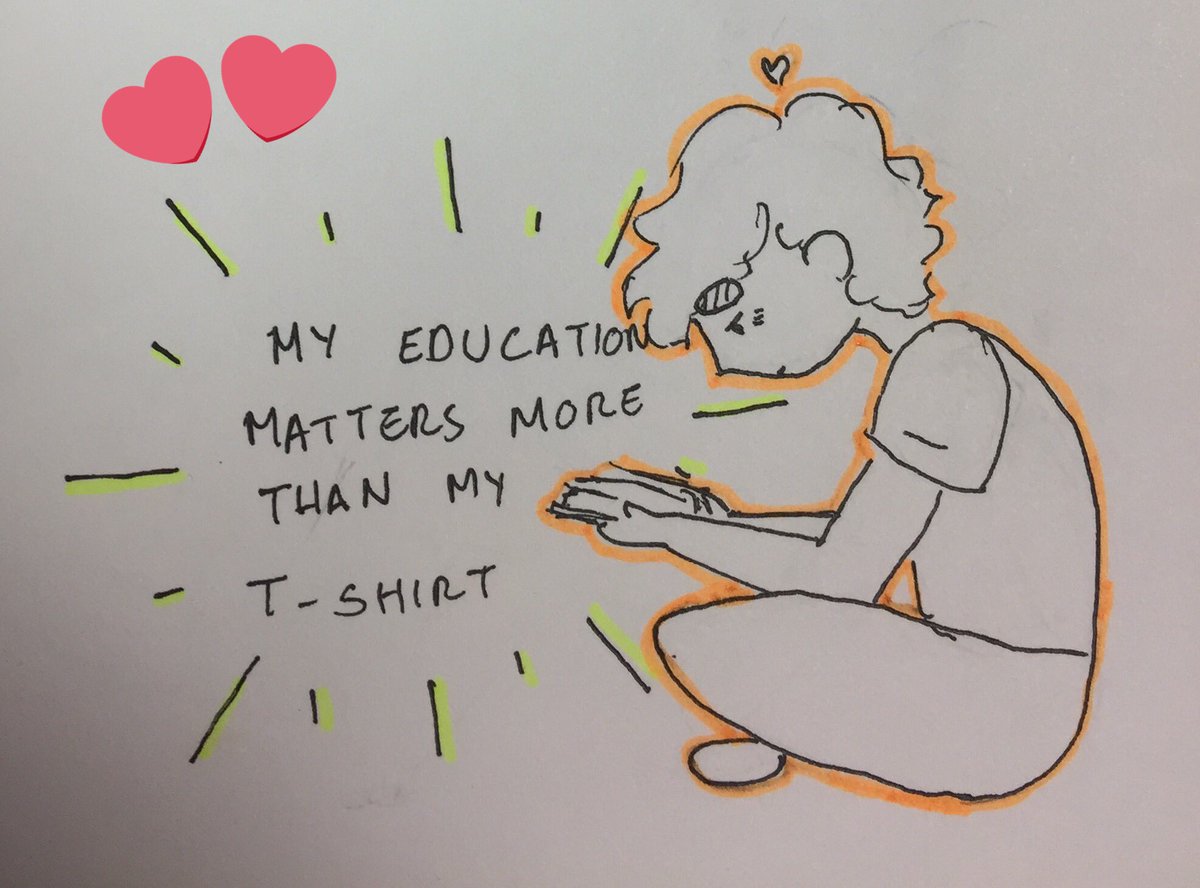 MY EDUCATION
MATTERS MORE
THAN MY
T-SHIRT